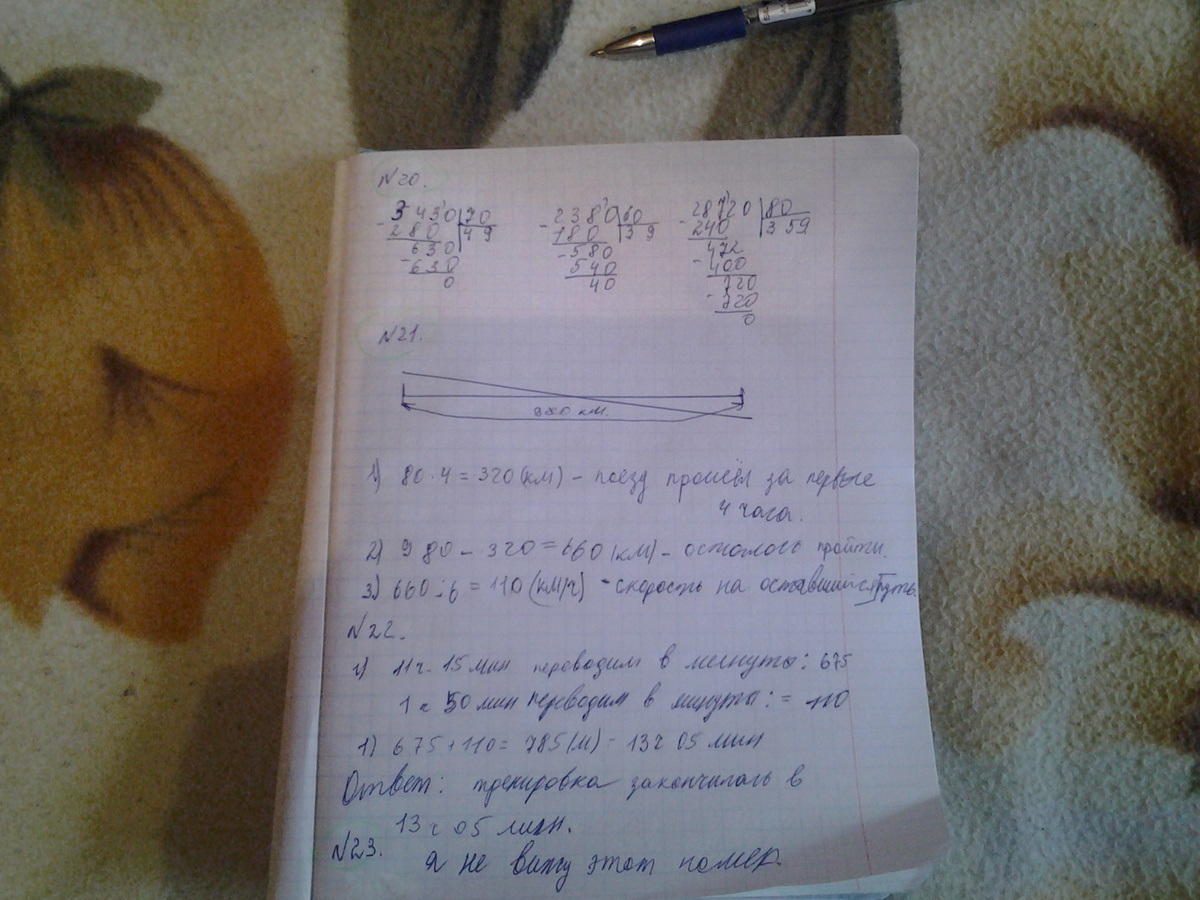 №20.
3430 70 2380 60 28720 80
- 280 49 - 180 39 - 240 359
630 580 472
- 630 - 540 - 400
0 40 720
- 720
0
№21.
980 км.
1) 80 · 4 = 320 (км) - поезд прошёл за первые
4 часа.
2) 980 - 320 = 660 (км) - осталось пройти.
3) 660 : 6 = 110 (км/ч) - скорость на оставшийся путь.
№22.
11 ч. 15 мин переводим в минуты: 675
1 ч 50 мин переводим в минуты: = 110
1) 675 + 110 = 785 (м) - 13 ч 05 мин
Ответ: тренировка закончилась в
13 ч 05 мин.
№23. я не вижу этот номер.